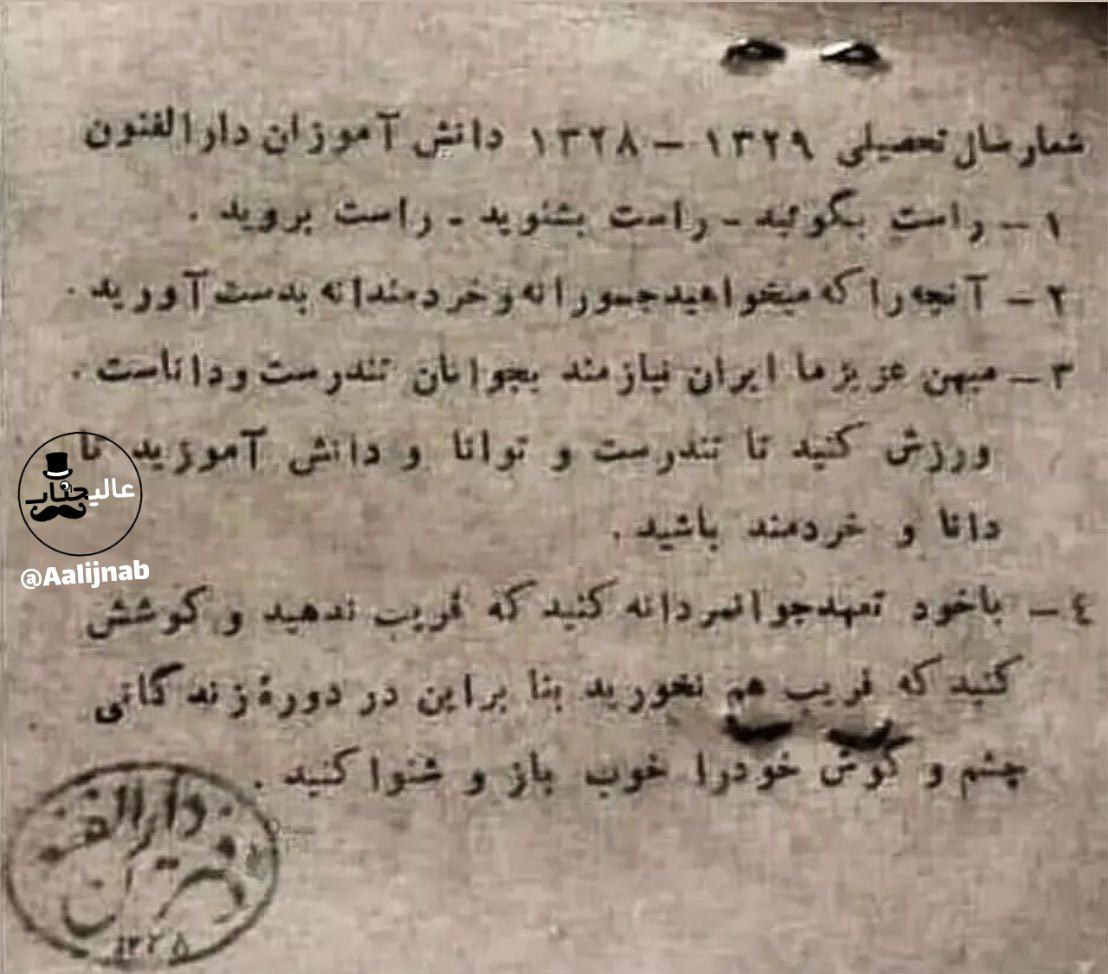 شعار سال تحصیلی ۱۳۲۹ - ۱۳۲۸ دانش آموزان دارالفنون
۱ - راست بگوئید - راست بشنوید - راست بروید .
۲ - آنچه را که میخواهید جسورانه و خردمندانه بدست آورید .
۳ - میهن عزیز ما ایران نیازمند بجوانان تندرست و داناست .
ورزش کنید تا تندرست و توانا و دانش آموزید تا
دانا و خردمند باشید .
٤ - باخود تعهد جوانمردانه کنید که فریب ندهید و کوشش
کنید که فریب هم نخورید بنا براین در دورهٔ زندگانی
چشم و گوش خودرا خوب باز و شنوا کنید .
عالیجناب
@Aalijnab
دارالفنون